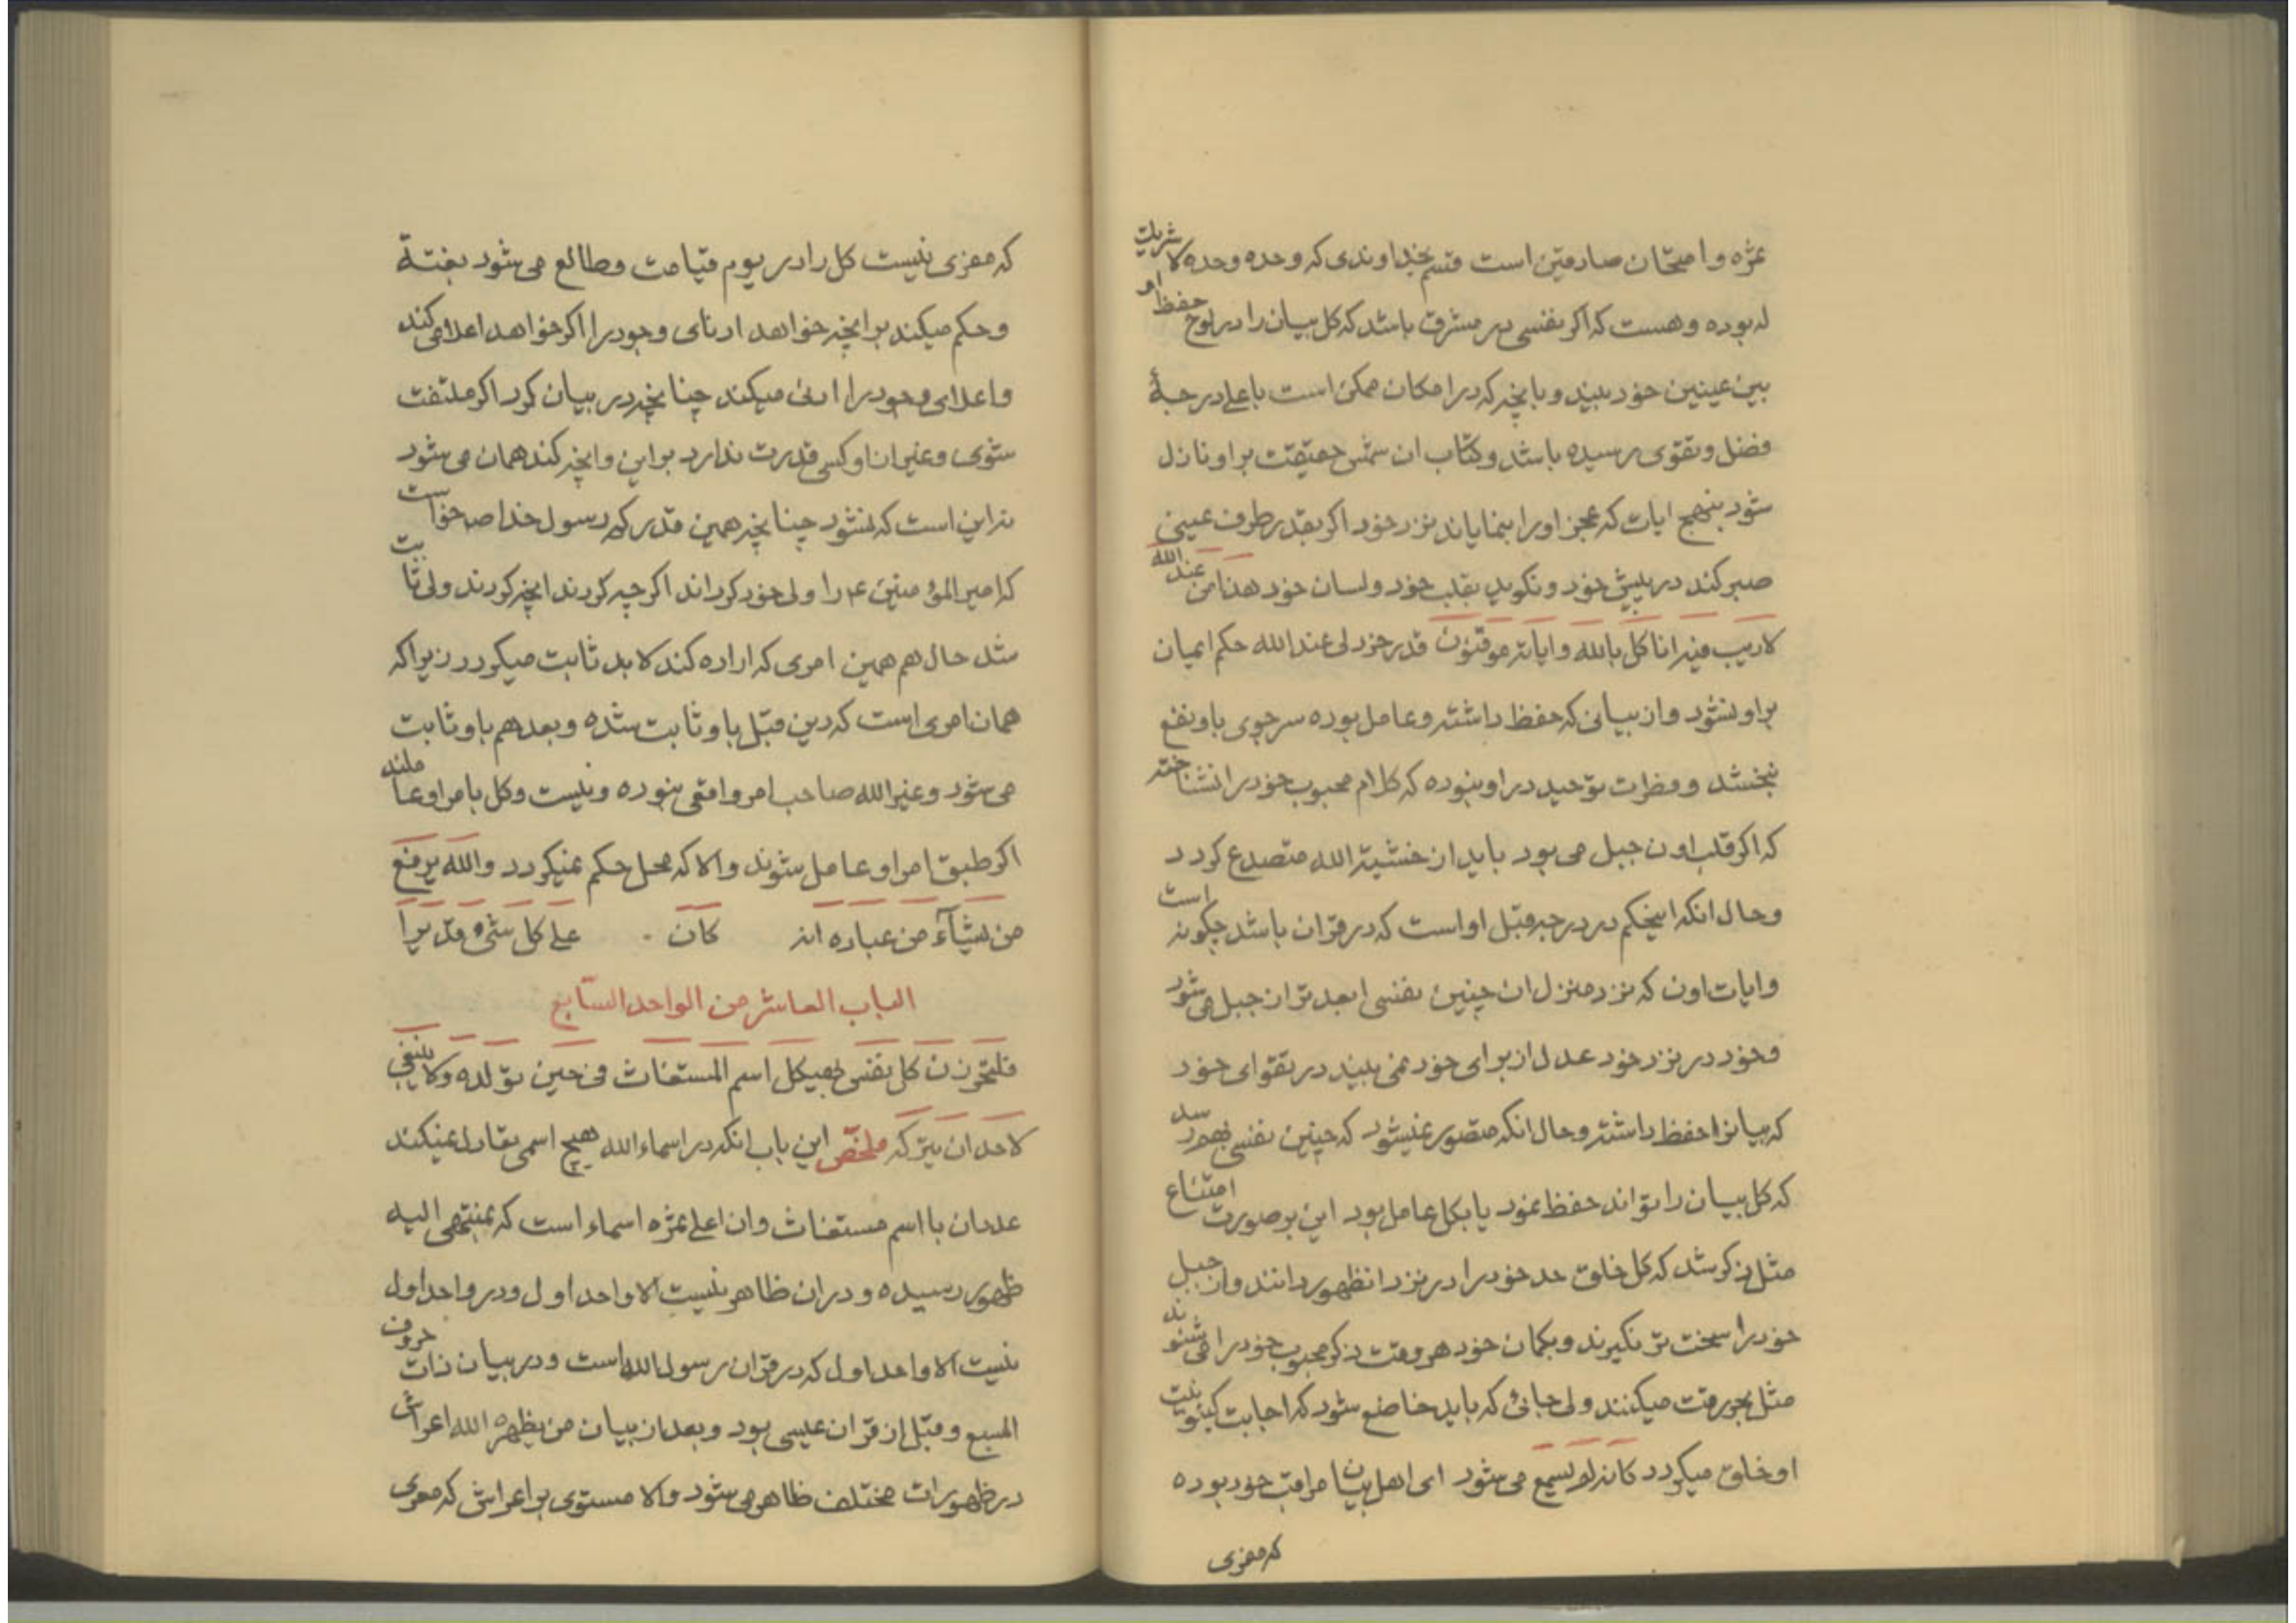 ثمره وامتحان صادقین است قسم بخداوندی که وحده وحده لا شریک
له بوده وهست که اکر نفسی در مشرق باشد که کل بیان را در لوح حفظ او
بین عینین خود ببیند وبانچه که در امکان ممکن است باعلی درجهٔ
فضل وتقوی رسیده باشد وکتاب ان شمس حقیقت بر او نازل
شود بنهج ایات که عجز اورا بنمایاند نزد خود اکر بقدر طرف عینی
صبر کند در پیش خود ونکوید بقلب خود ولسان خود هذا من عند الله
لا ریب فیه انا کل بالله وایاته موقنون قدر خردلی عند الله حکم ایمان
بر او نشود وان بیانی که حفظ داشته وعامل بوده سر جوی باو نفع
نبخشد وفطرت توحید در او نبوده که کلام محبوب خود را نشناخته
که اکر قلب اون جبل می بود باید از خشیة الله متصدع کردد
وحال انکه اینحکم در درجه قبل او است که در قران باشد چکونه است
وایات اون که نزد منزل ان چنین نفسی ابعد تر از جبل می شود
وخود در نزد خود عدل از برای خود نمی بیند در تقوای خود
که بیانرا حفظ داشته وحال انکه متصور نمیشود که چنین نفسی بهم رسد
که کل بیان را تواند حفظ نمود یا بکل عامل بود این بر صورت امتناع
مثل ذکر شد که کل خلق حد خود را در نزد انظهور دانند واز جبل
خود را سخت تر نکیرند وبکمان خود هر وقت ذکر محبوب خود را می شنوند
مثل بحر رقت میکنند ولی جائی که باید خاضع شود که اجابت کینونیت
او خلق میکردد کانه لم یسمع می شود ای اهل بیان مراقب خود بوده
که مفری
که مفری نیست کل را در یوم قیامت وطالع می شود بغتة
وحکم میکند بر انچه خواهد ادنای وجود را اکر خواهد اعلا می کند
واعلای وجود را ادنی میکند چنانچه در بیان کرد اکر ملتفت
شوی وغیر از او کسی قدرت ندارد بر این وانچه کند همان می شود
نه این است که نشود چنانچه همین قدر که رسول خدا ص خواست
که امیر المؤمنین ع را ولی خود کرداند اکر چه کردند انچه کردند ولی ثابت
شد حال هم همین امری که اراده کند لا بد ثابت میکردد زیرا که
همان امری است که دین قبل باو ثابت شده وبعد هم باو ثابت
می شود وغیر الله صاحب امر واقعی نبوده ونیست وکل بامر او عاملند
اکر طبق امر او عامل شوند والا که محل حکم نمیکردد والله یرفع
من یشآء من عباده انه کان علی کل شیء قدیرا
الباب العاشر من الواحد السّابع
فلتحرزن کل نفس بهیکل اسم المستغاث فی حین تولده ولا ینبغی
لاحد ان یترکه ملخّص این باب انکه در اسماء الله هیچ اسمی تعادل نمیکند
عددان با اسم مستغاث وان اعلی ثمره اسماء است که بمنتهی الیه
ظهور رسیده ودر ان ظاهر نیست الا واحد اول ودر واحد اول
نیست الا واحد اول که در قران رسول الله است ودر بیان ذات حروف
السبع وقبل از قران عیسی بود وبعد از بیان من یظهره الله اعراش
در ظهورات مختلف ظاهر می شود والا مستوی بر اعراش که معری